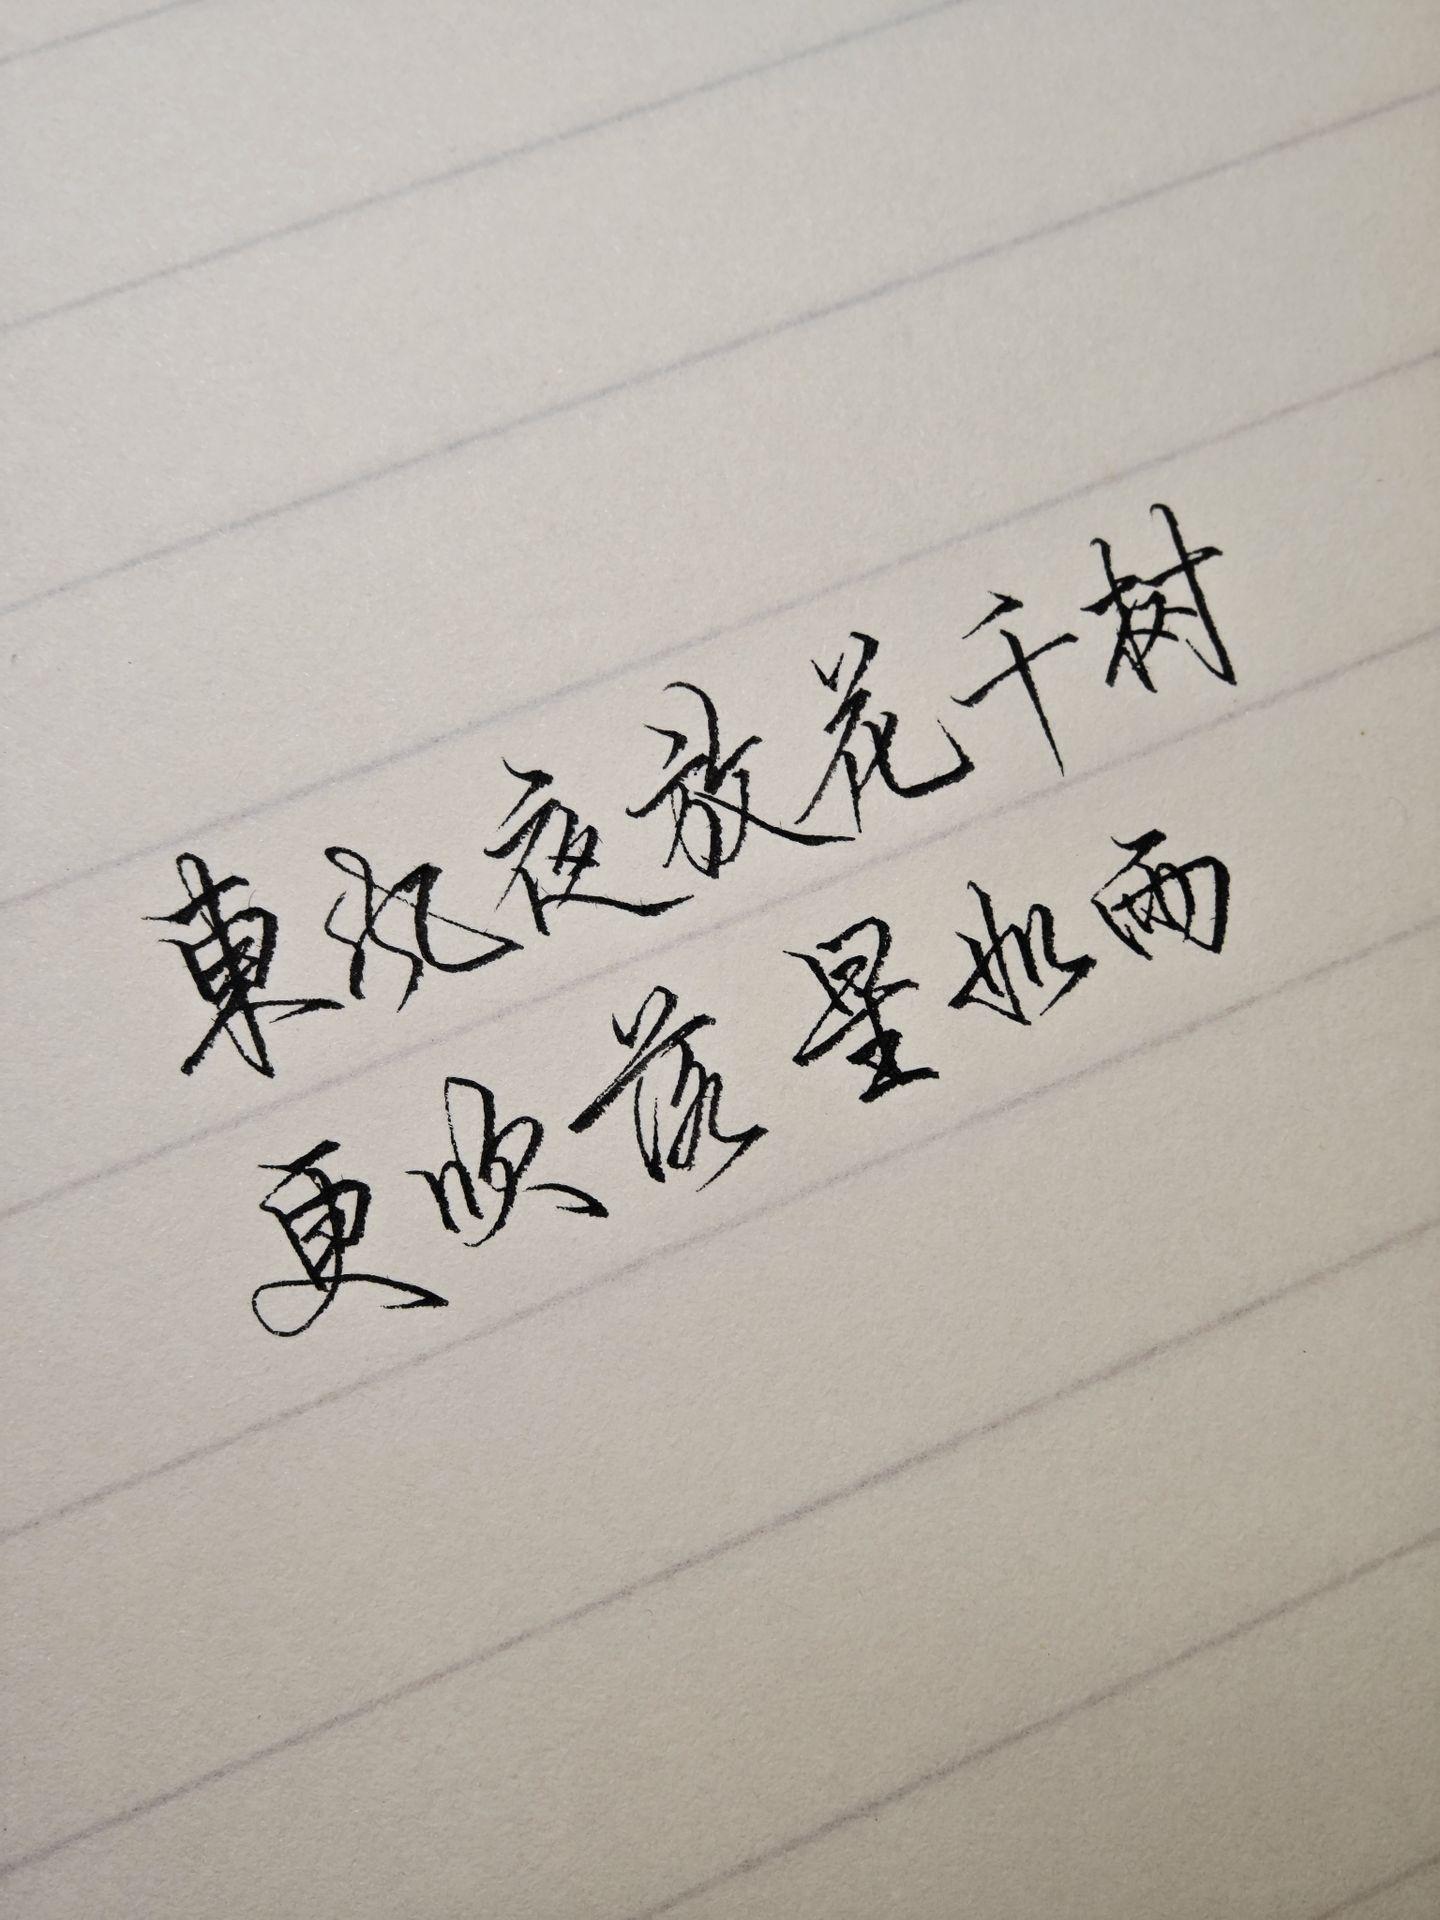 東风夜放花千树
更吹落星如雨